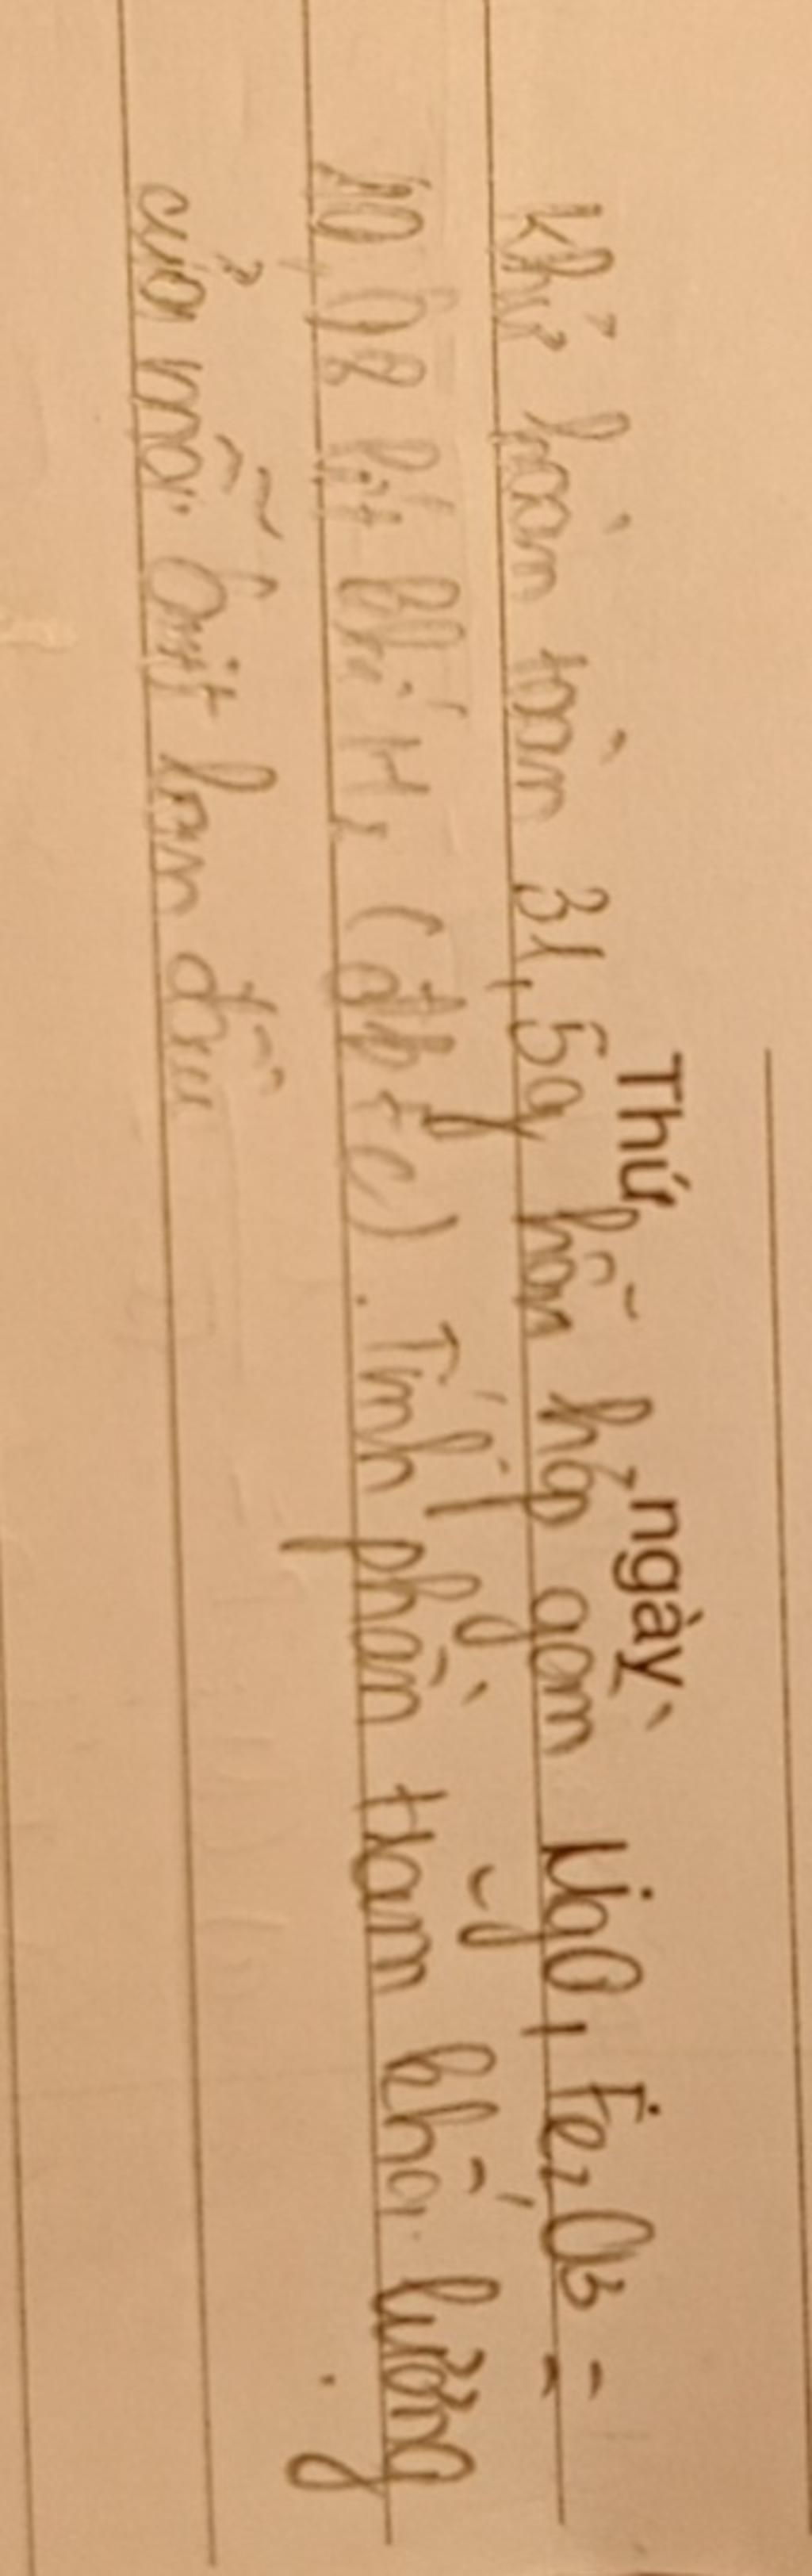 Thứ ngày
khử hoàn toàn 31,5g hỗn hợp gồm NiO, Fe2O3 =
10,08 lít khí H2 (đktc). Tính phần trăm khối lượng
của mỗi oxit ban đầu